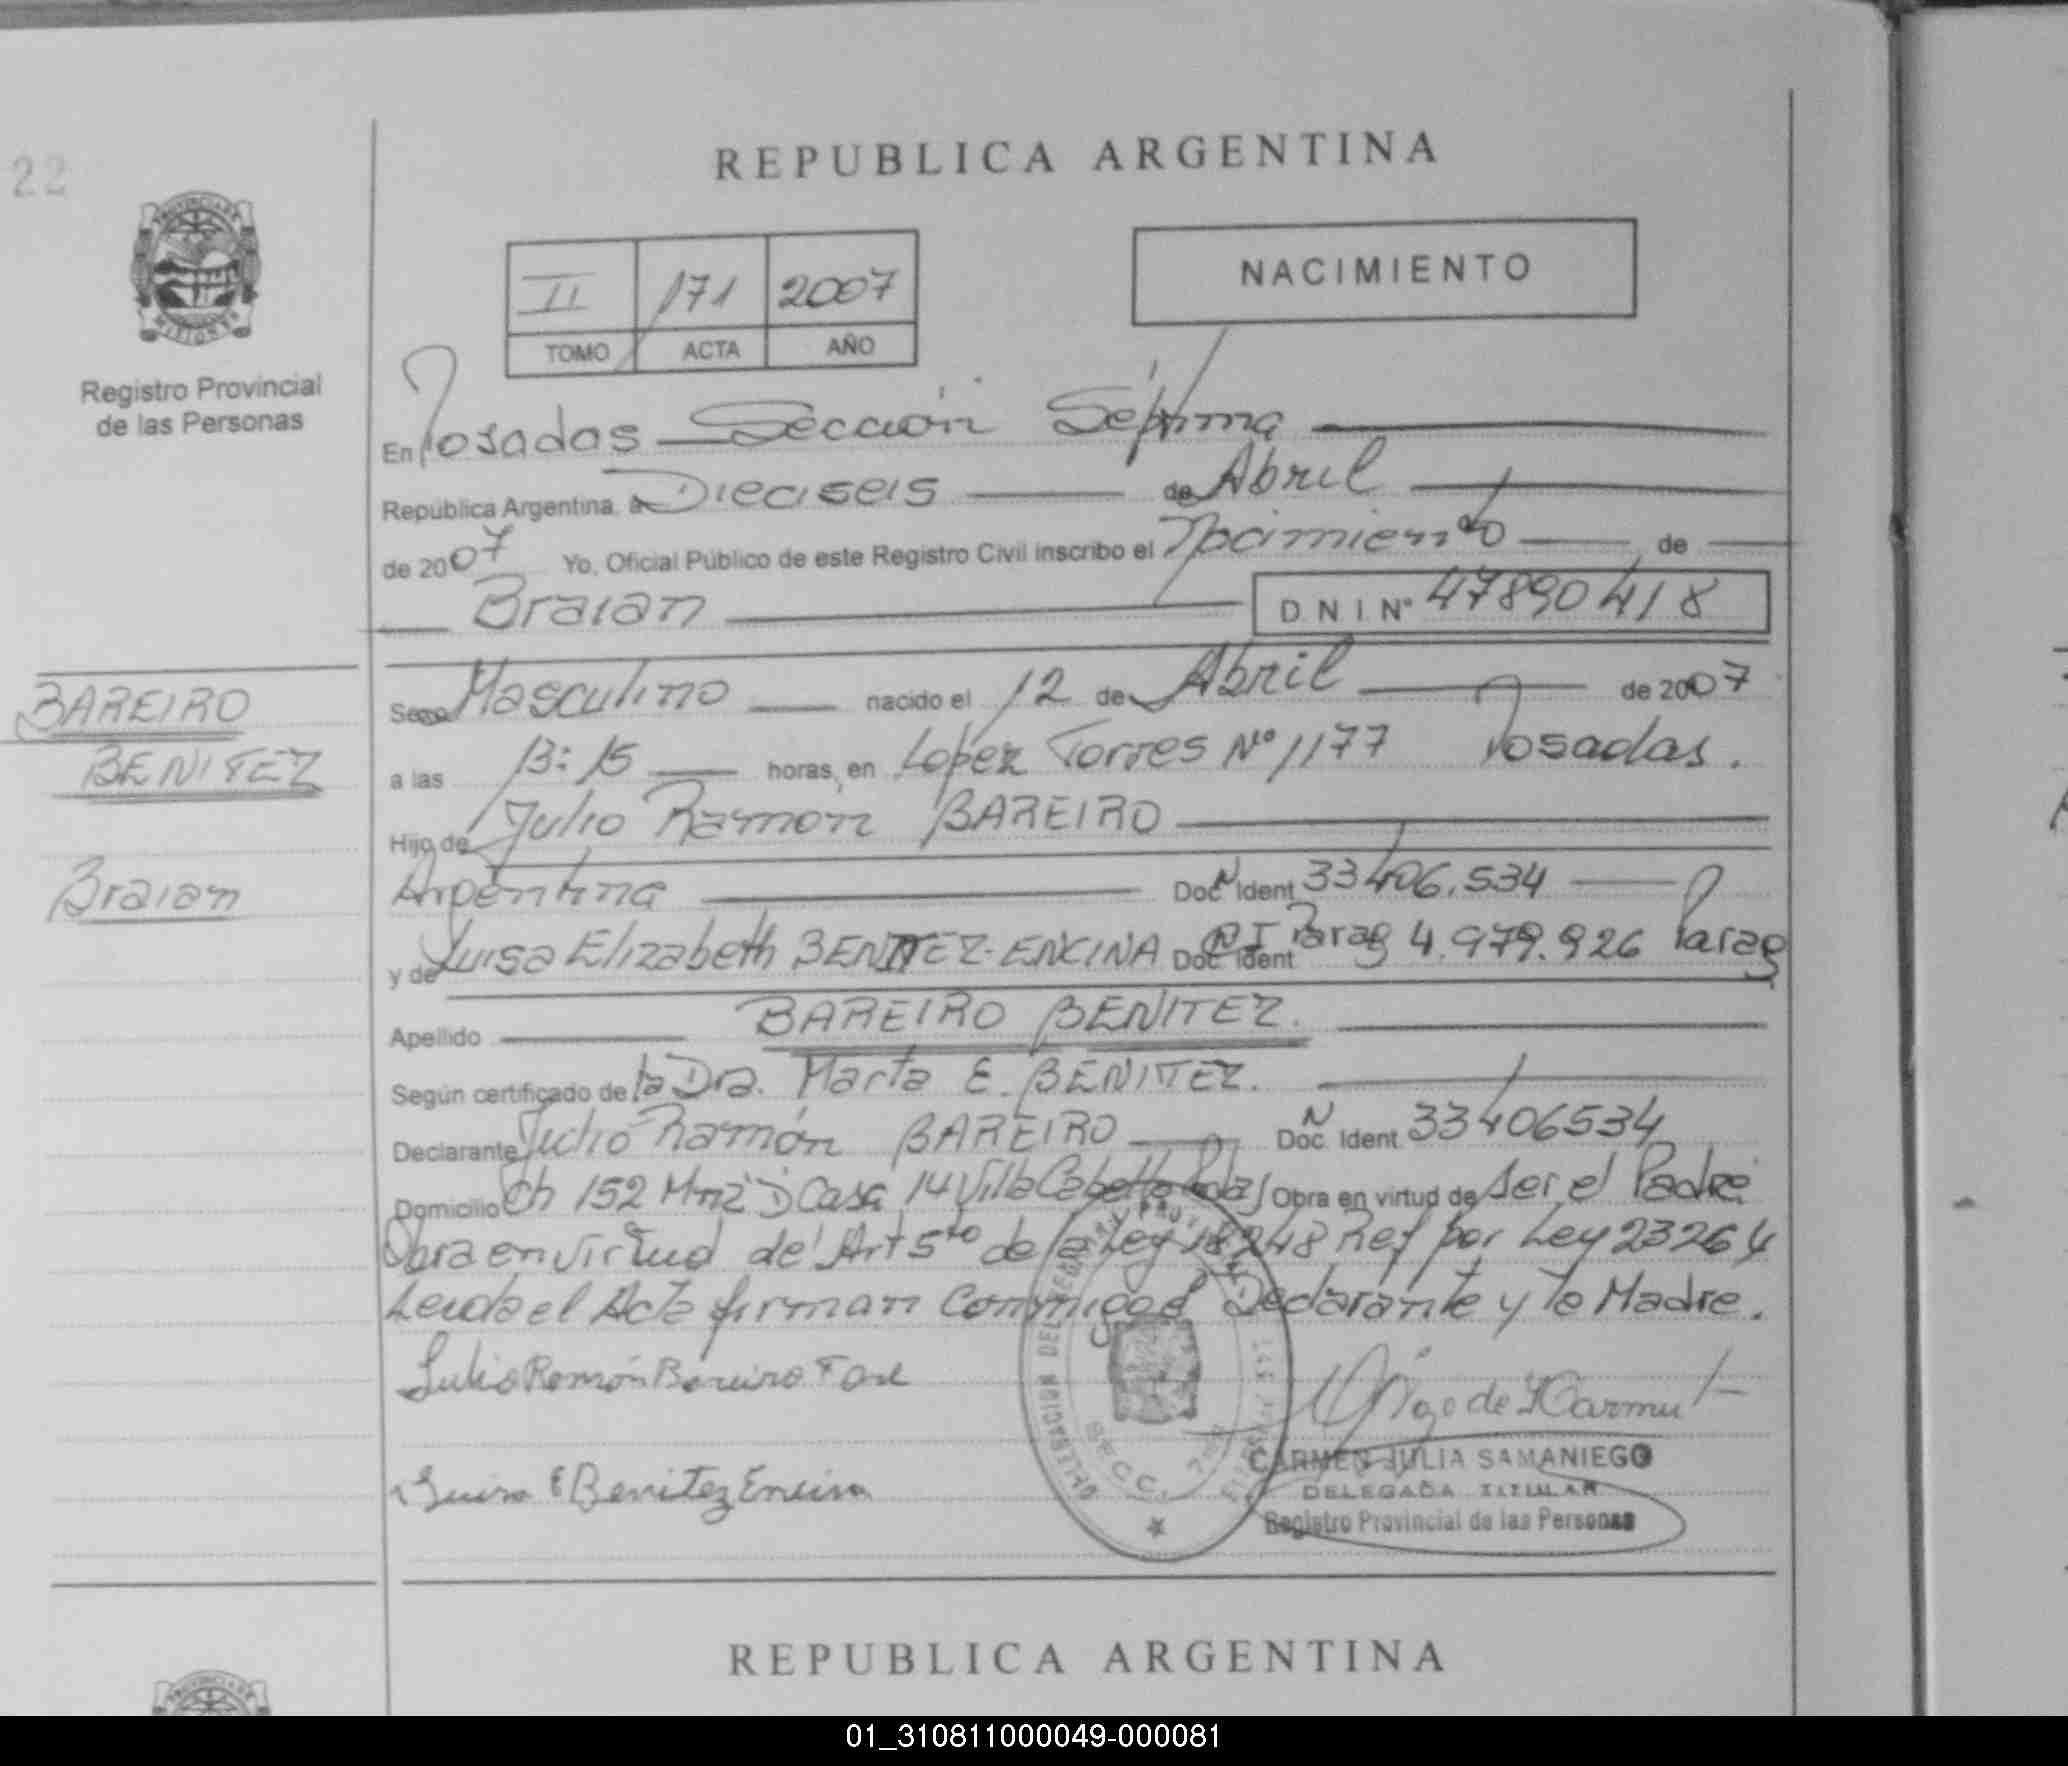 22
REPUBLICA ARGENTINA
II 171 2007
TOMO ACTA AÑO
NACIMIENTO
Registro Provincial
de las Personas
En Posadas Sección Séptima
Republica Argentina, a Dieciseis de Abril
de 2007 Yo, Oficial Público de este Registro Civil inscribo el Nacimiento de
Braian D N I Nº 47890418
BAREIRO
BENITEZ
Braian
Sexo Masculino nacido el 12 de Abril de 2007
a las 13:15 horas, en López Torres Nº 1177 Posadas.
Hijo de Julio Ramón BAREIRO
Argentina Doc Ident 33406.534
y de Luisa Elizabeth BENITEZ-ENCINA Doc Ident Parag 4.979.926 Parag
Apellido BAREIRO BENITEZ.
Según certificado de la Dra. Marta E. BENITEZ.
Declarante Julio Ramón BAREIRO Doc Ident 33406534
Domicilio Ch 152 Mnz D Casa 14 Villa Cabello Obra en virtud de ser el Padre
Obra en virtud del Art 5to de la Ley 18248 Ref por Ley 23264
Leida el Acta firman Conmigo el Declarante y la Madre.
Julio Ramón Bareiro
Luisa E Benitez Encina
CARMEN JULIA SAMANIEGO
DELEGADA TITULAR
Registro Provincial de las Personas
REPUBLICA ARGENTINA
01_310811000049-000081